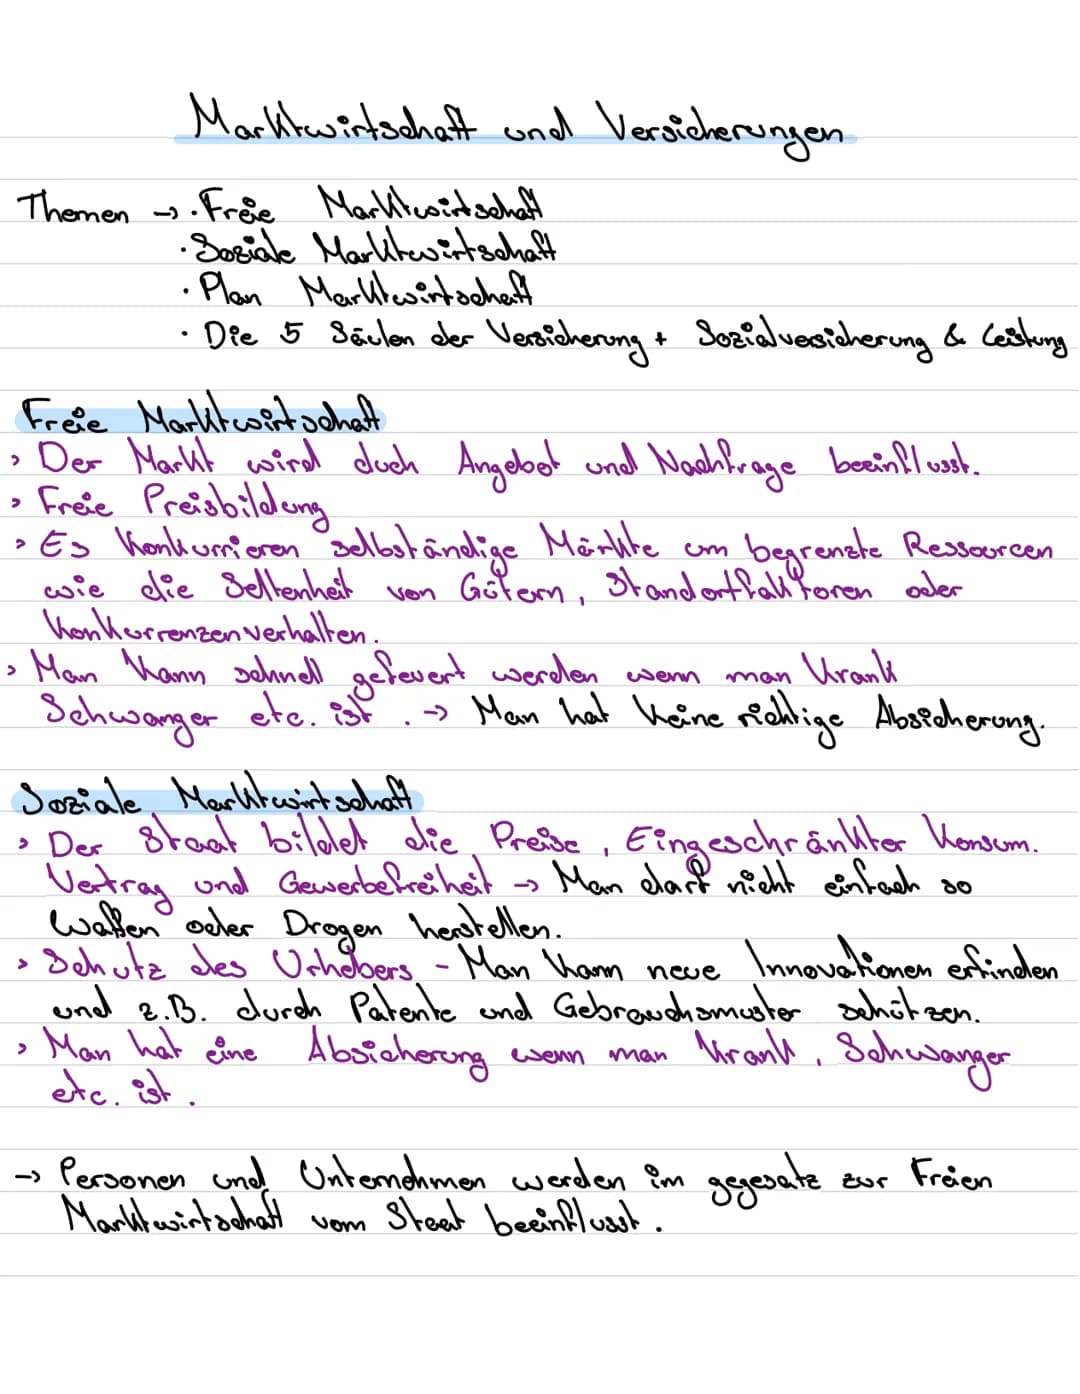 Marktwirtschaft und Versicherungen
Themen → · Freie Marktwirtschaft
· Soziale Marktwirtschaft
· Plan Marktwirtschaft
· Die 5 Säulen der Versicherung + Sozialversicherung & Leistung
Freie Marktwirtschaft
> Der Markt wird duch Angebot und Nachfrage beeinflusst.
> Freie Preisbildung
> Es Konkurrieren selbständige Märkte um begrenzte Ressourcen
wie die Seltenheit von Gütern, Standortfaktoren oder
Konkurrenzenverhalten.
> Man kann schnell gefeuert werden wenn man Krank
Schwanger etc. ist. → Man hat keine richtige Absicherung.
Soziale Marktwirtschaft
> Der Staat bildet die Preise, Eingeschränkter Konsum.
Vertrag und Gewerbefreiheit → Man darf nicht einfach so
Waffen oder Drogen herstellen.
> Schutz des Urhebers - Man kann neue Innovationen erfinden
und z.B. durch Patente und Gebrauchsmuster schützen.
> Man hat eine Absicherung wenn man Krank, Schwanger
etc. ist.
→ Personen und Unternehmen werden im gegesatz zur Freien
Marktwirtschaft vom Staat beeinflusst.